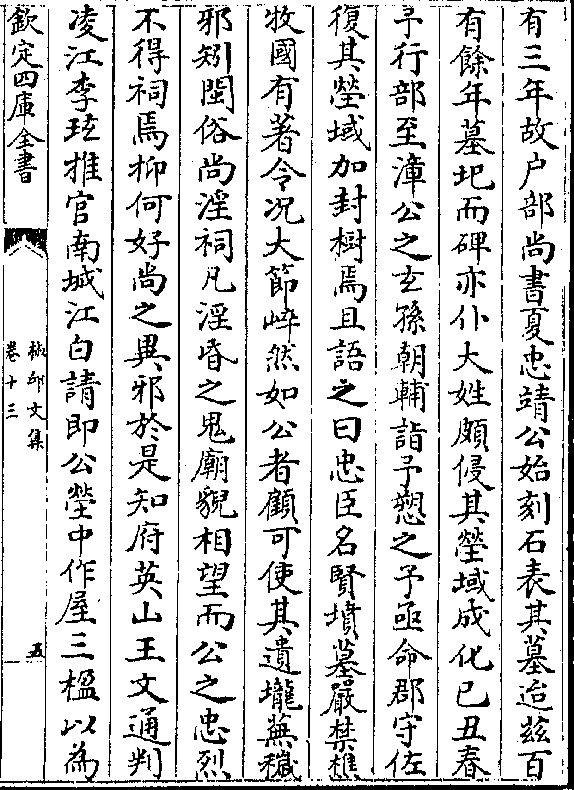 有三年故户部尚書夏忠靖公始刻石表其墓迨茲百
有餘年墓圮而碑亦仆大姓頗侵其塋域成化己丑春
予行部至漳公之玄孫朝輔詣予愬之予亟命郡守佐
復其塋域加封樹焉且語之曰忠臣名賢墳墓嚴禁樵
牧國有著令况大節崪然如公者顧可使其遺壠蕪穢
邪矧閩俗尚淫祠凡淫昏之鬼廟貌相望而公之忠烈
不得祠焉抑何好尚之異邪於是知府英山王文通判
凌江李珪推官南城江白請即公塋中作屋三楹以為
欽定四庫全書
椒邱文集
卷十三
五